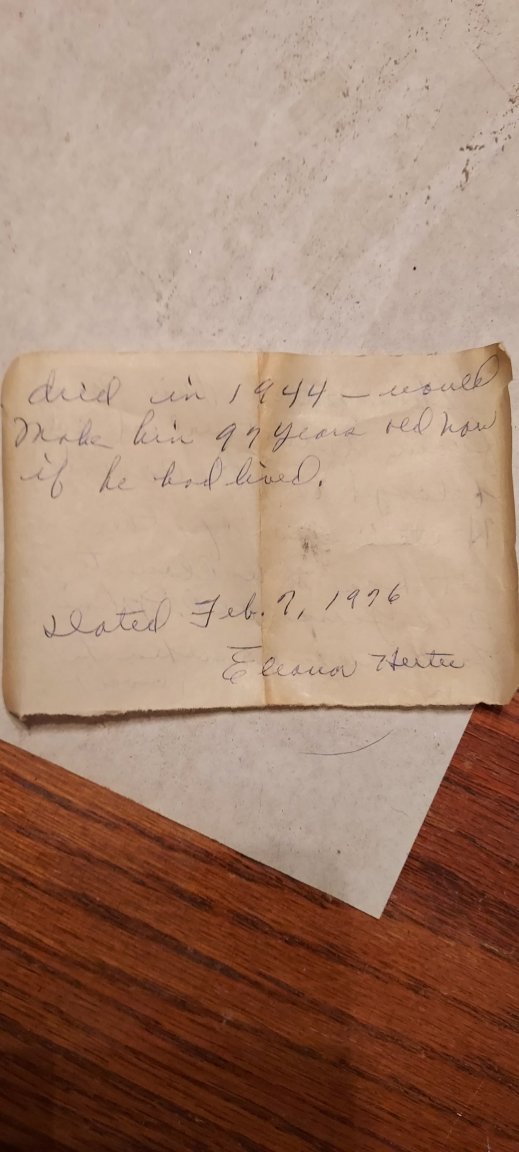 died in 1944 — would
Make him 97 years old now
if he had lived.
Dated Feb. 7, 1976
Eleanor